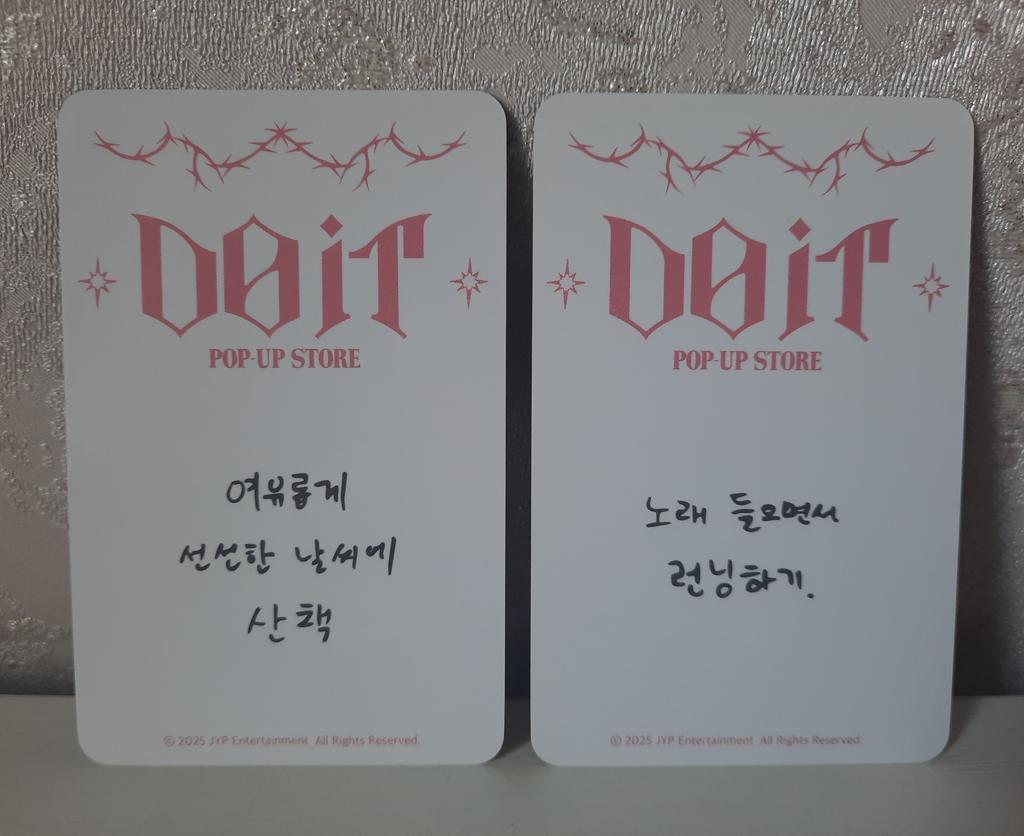 DO iT
POP-UP STORE
여유롭게
선선한 날씨에
산책
© 2025 JYP Entertainment All Rights Reserved.
DO iT
POP-UP STORE
노래 들으면서
런닝하기.
© 2025 JYP Entertainment All Rights Reserved.